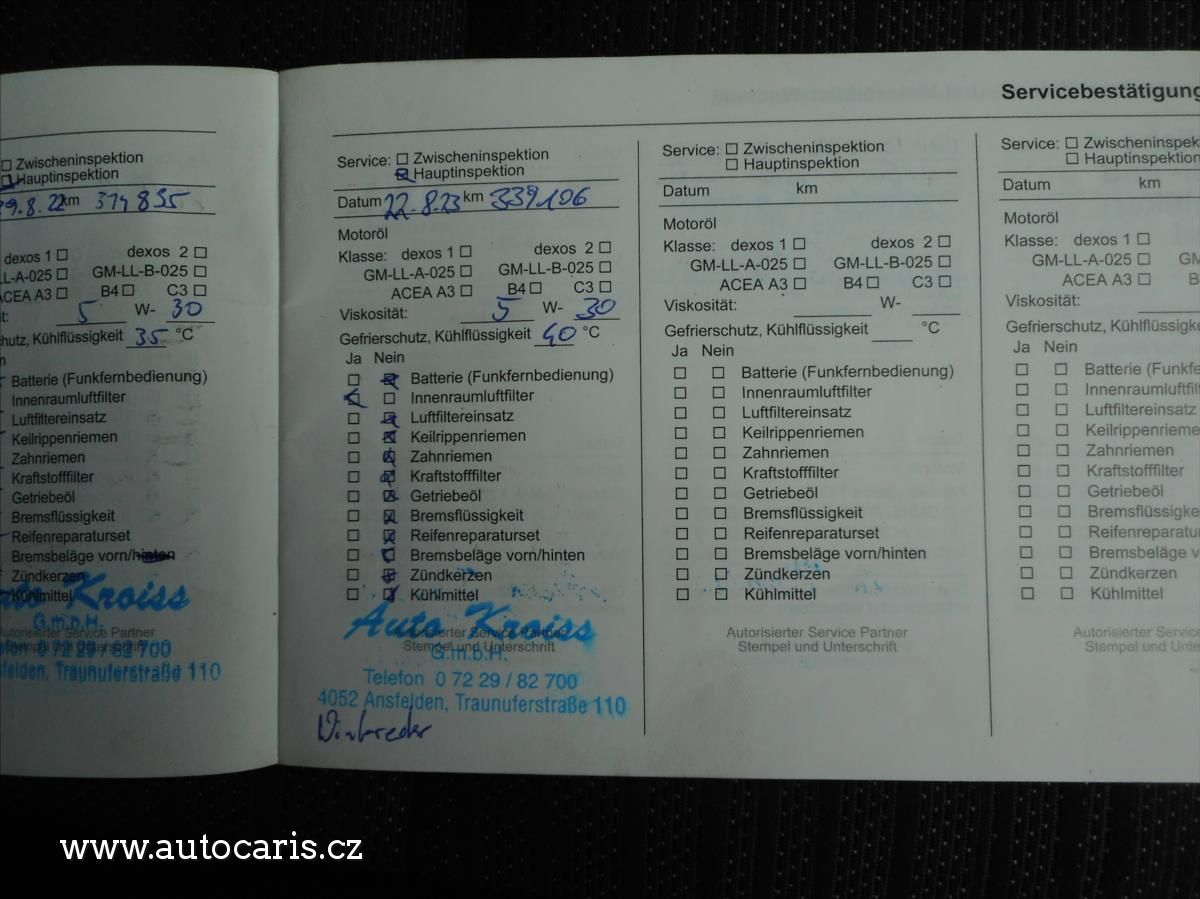 Servicebestätigung
Zwischeninspektion
Hauptinspektion
29.8.22 km 314 835
dexos 1 dexos 2
LL-A-025 GM-LL-B-025
ACEA A3 B4 C3
5 W- 30
hutz, Kühlflüssigkeit 35 °C
Batterie (Funkfernbedienung)
Innenraumluftfilter
Luftfiltereinsatz
Keilrippenriemen
Zahnriemen
Kraftstofffilter
Getriebeöl
Bremsflüssigkeit
Reifenreparaturset
Bremsbeläge vorn/hinten
Zündkerzen
Kühlmittel
Auto Kroiss
G.m.b.H.
Autorisierter Service Partner
Stempel und Unterschrift
fon 0 72 29 / 82 700
felden, Traunuferstraße 110
Service: Zwischeninspektion
Hauptinspektion
Datum 22.8.23 km 339106
Motoröl
Klasse: dexos 1 dexos 2
GM-LL-A-025 GM-LL-B-025
ACEA A3 B4 C3
Viskosität: 5 W- 30
Gefrierschutz, Kühlflüssigkeit 40 °C
Ja Nein
Batterie (Funkfernbedienung)
Innenraumluftfilter
Luftfiltereinsatz
Keilrippenriemen
Zahnriemen
Kraftstofffilter
Getriebeöl
Bremsflüssigkeit
Reifenreparaturset
Bremsbeläge vorn/hinten
Zündkerzen
Kühlmittel
Auto Kroiss
Autorisierter Service Partner
Stempel und Unterschrift
G.m.b.H.
Telefon 0 72 29 / 82 700
4052 Ansfelden, Traunuferstraße 110
Service: Zwischeninspektion
Hauptinspektion
Datum km
Motoröl
Klasse: dexos 1 dexos 2
GM-LL-A-025 GM-LL-B-025
ACEA A3 B4 C3
Viskosität: W-
Gefrierschutz, Kühlflüssigkeit °C
Ja Nein
Batterie (Funkfernbedienung)
Innenraumluftfilter
Luftfiltereinsatz
Keilrippenriemen
Zahnriemen
Kraftstofffilter
Getriebeöl
Bremsflüssigkeit
Reifenreparaturset
Bremsbeläge vorn/hinten
Zündkerzen
Kühlmittel
Autorisierter Service Partner
Stempel und Unterschrift
Service: Zwischeninspek
Hauptinspekti
Datum km
Motoröl
Klasse: dexos 1
GM-LL-A-025 GM
ACEA A3
Viskosität:
Gefrierschutz, Kühlflüssigke
Ja Nein
Batterie (Funkfe
Innenraumluftfilt
Luftfiltereinsatz
Keilrippenrieme
Zahnriemen
Kraftstofffilter
Getriebeöl
Bremsflüssigke
Reifenreparatur
Bremsbeläge v
Zündkerzen
Kühlmittel
Autorisierter Servic
Stempel und Unte
www.autocaris.cz